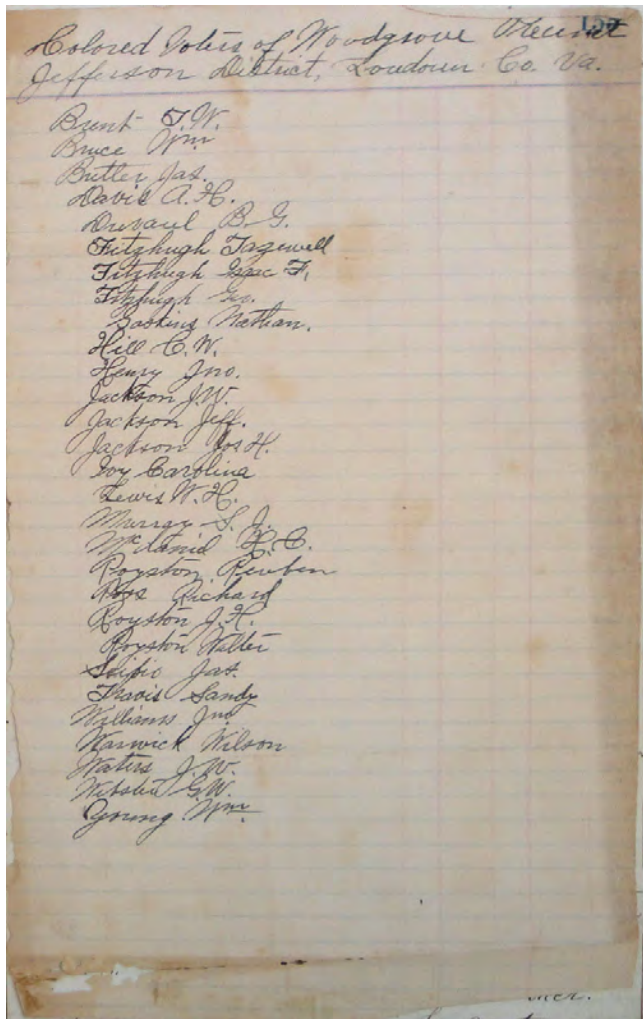 155
Colored Voters of Woodgrove Precinct
Jefferson District, Loudoun Co. Va.
Brent T. W.
Bruce Wm
Butler Jas.
Davis A. H.
Duvaul B. G.
Fitzhugh Tazewell
Fitzhugh Isac F.
Fitzhugh Geo.
Gaskins Nathan.
Hill C. W.
Henry Jno.
Jackson J. W.
Jackson Jeff.
Jackson Jos H.
Joy Carolina
Lewis W. H.
Murray S. J.
McDanid H. C.
Royston Reuben
Ross Richard
Royston J. H.
Royston Walter
Scipio Jas.
Travis Sandy
Williams Jno
Warwick Wilson
Waters J. W.
Webster G. W.
Young Wm.